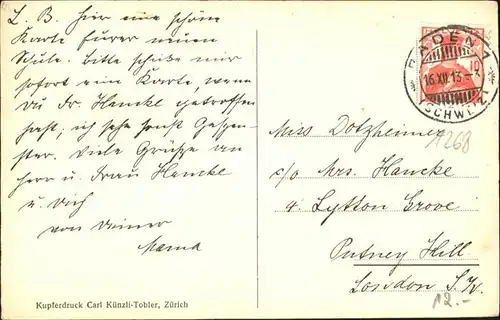 L. B. Hier eine schöne
Karte Eurer neuen
Schule. Bitte schreibe mir
sofort eine Karte, wenn
du Fr. Hancke getroffen
hast; ich sehe sonst Gespen-
ster. Viele Grüsse an
Herr u. Frau Hancke
u. Dich
von Deiner
Mama
Kupferdruck Carl Künzli-Tobler, Zürich
BADEN 1
10
16.XII.13
(SCHWEIZ)
Miss Dotzheimer
c/o Mrs. Hancke
4. Lytton Grove
Putney Hill
London S.W.
12.-